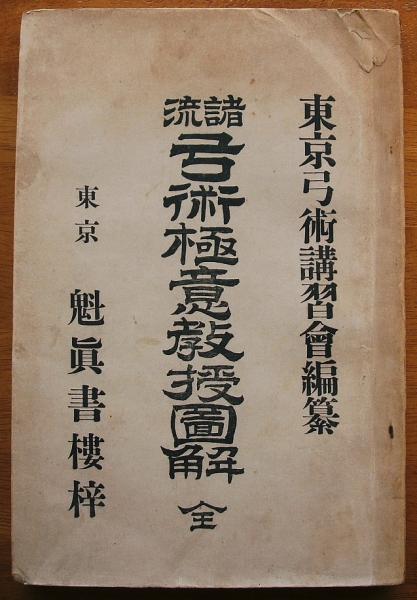 東京弓術講習會編纂
諸流
弓術極意教授圖解 全
東京 魁眞書樓梓